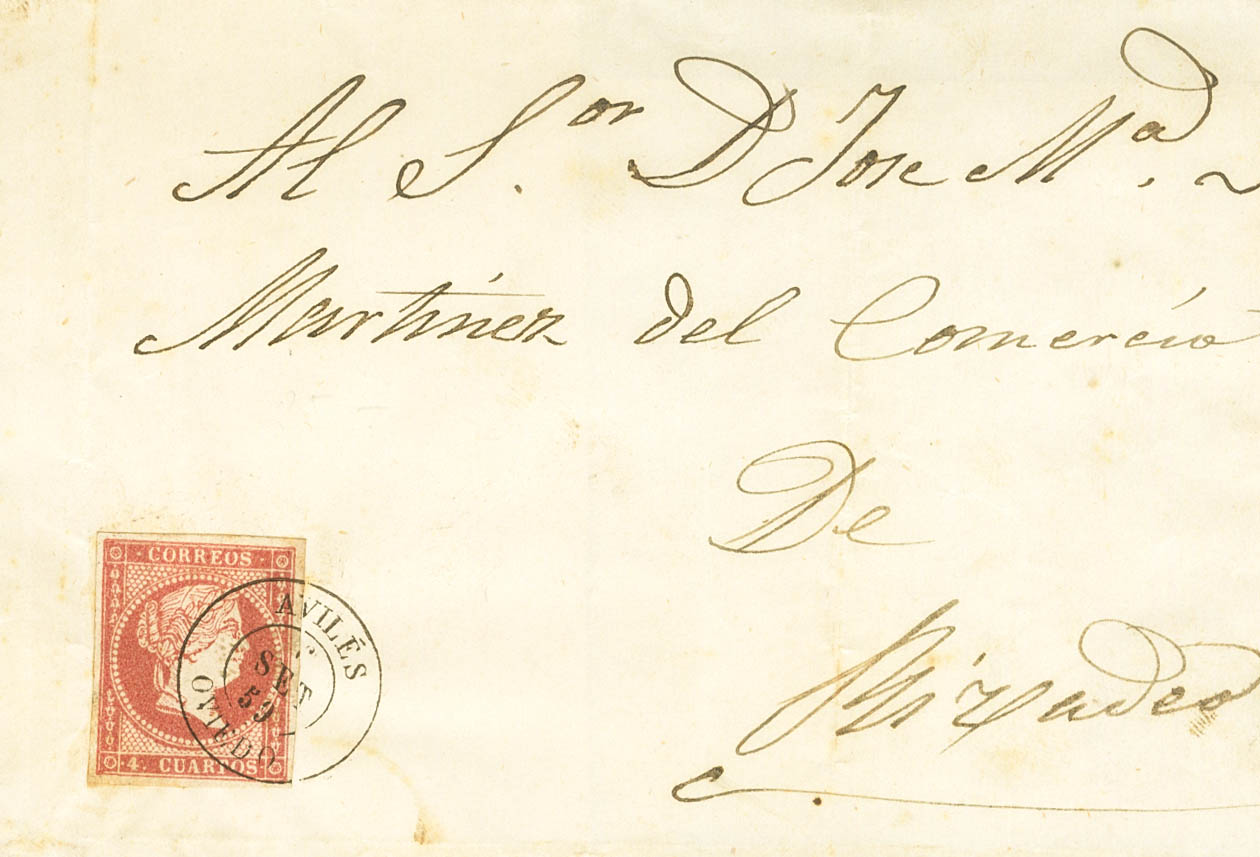 Al S.or D Jose M.a
Martinez del Comercio
De
Rivadeo
CORREOS
4. CUARTOS
AVILÉS
SET
59
OVIEDO